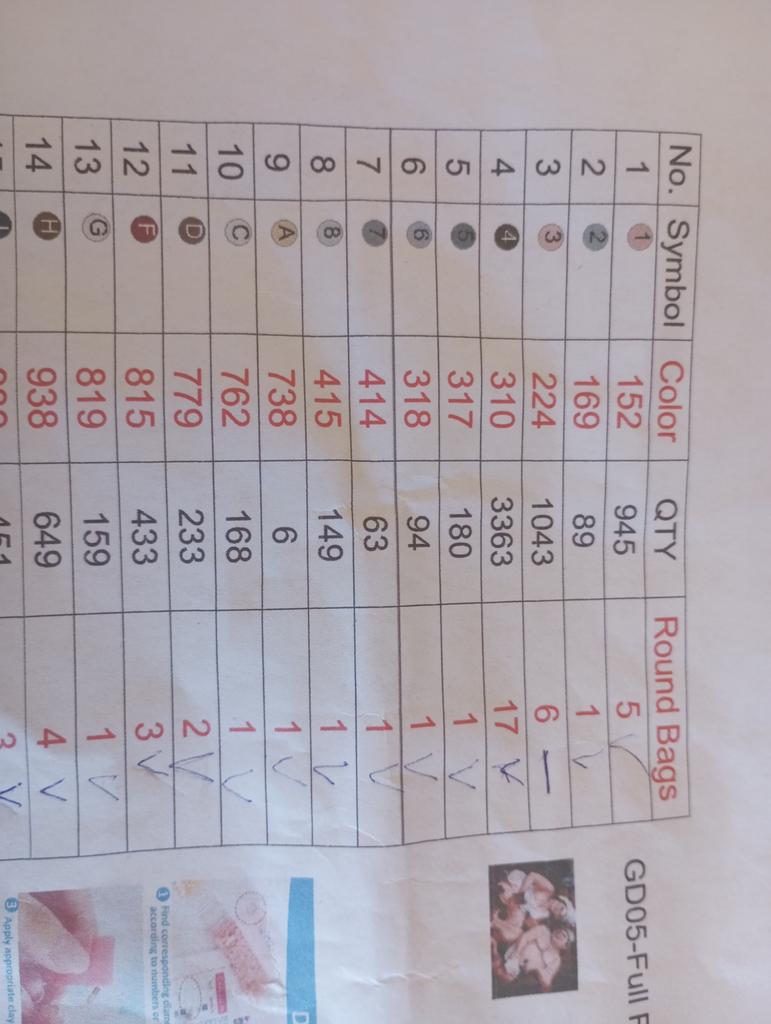 GD05-Full
No. Symbol Color QTY Round Bags
1 1 152 945 5
2 2 169 89 1
3 3 224 1043 6
4 4 310 3363 17
5 5 317 180 1
6 6 318 94 1
7 7 414 63 1
8 8 415 149 1
9 A 738 6 1
10 C 762 168 1
11 D 779 233 2
12 F 815 433 3
13 G 819 159 1
14 H 938 649 4
451 3
D
1 Find corresponding
according to numbers or
3 Apply appropriate clay